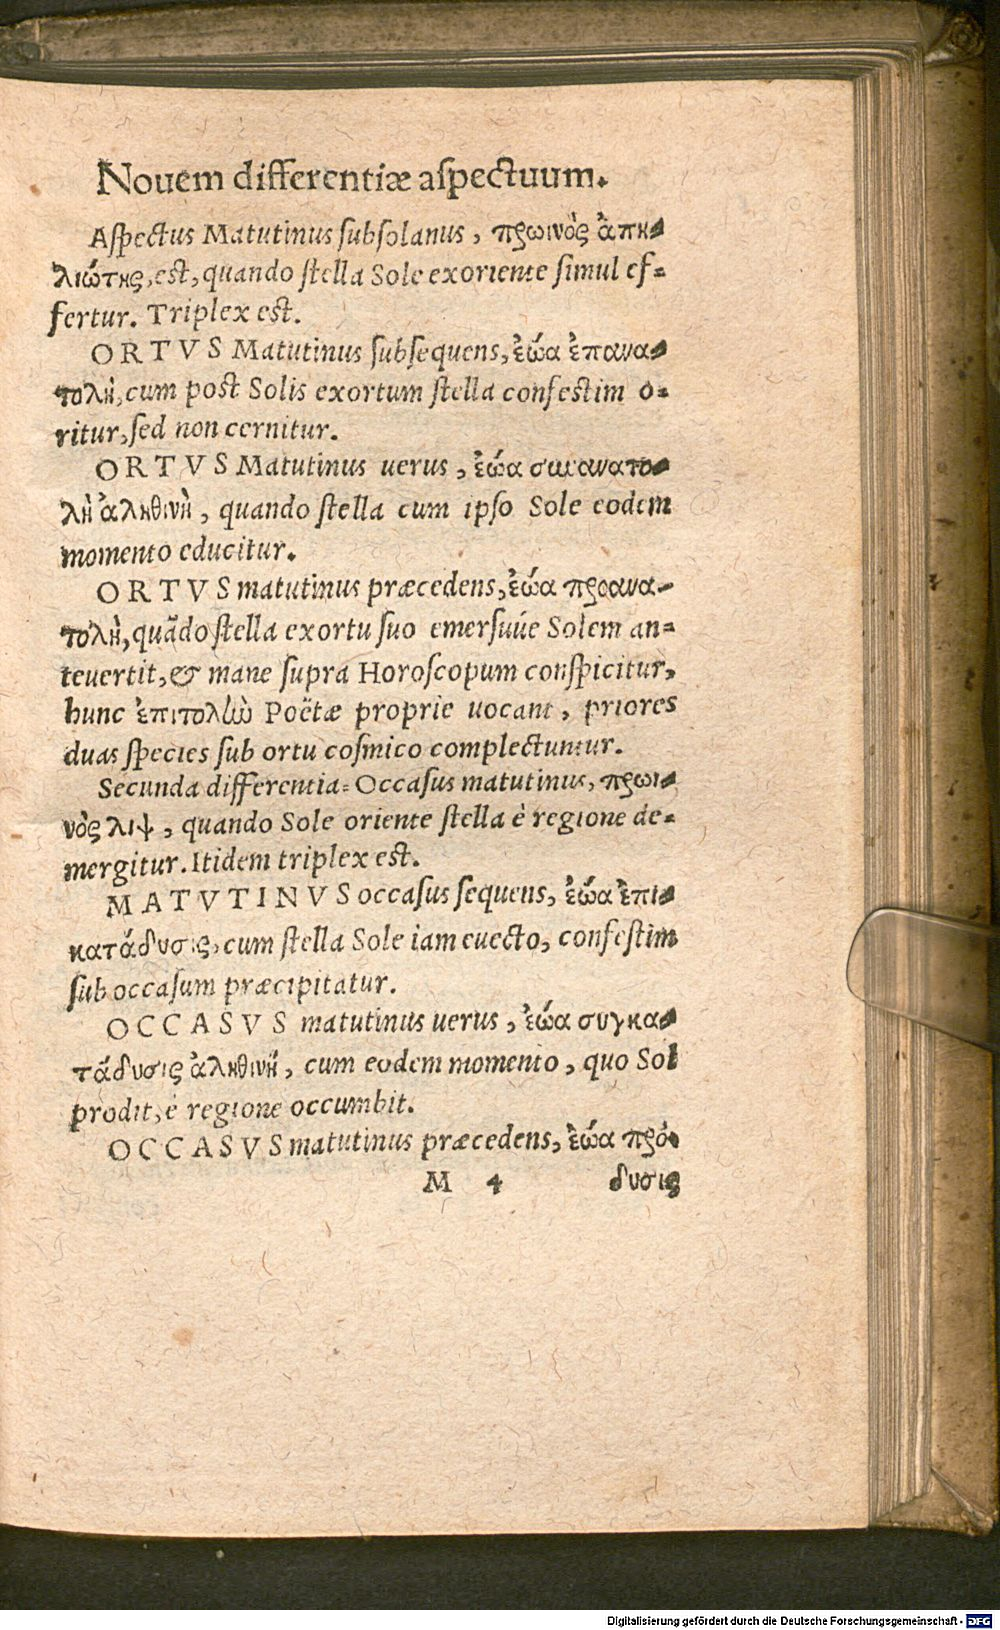 Nouem differentiæ aſpectuum.
Aſpectus Matutinus ſubſolanus, πρωινὸς ἀπη-
λιώτης, est, quando ſtella Sole exoriente ſimul ef-
fertur. Triplex est.
ORTVS Matutinus ſubſequens, ἑῴα ἐπανα-
τολὴ, cum post Solis exortum ſtella confestim o-
ritur, ſed non cernitur.
ORTVS Matutinus uerus, ἑῴα συνανατο-
λὴ ἀληθινὴ, quando ſtella cum ipſo Sole eodem
momento educitur.
ORTVS matutinus præcedens, ἑῴα προανα-
τολὴ, quãdo ſtella exortu ſuo emerſuúe Solem an-
teuertit, & mane ſupra Horoſcopum conſpicitur,
hunc ἐπιτολὼ Poëtæ proprie uocant, priores
duas ſpecies ſub ortu coſmico complectuntur.
Secunda differentia: Occaſus matutinus, πρωι-
νὸς λιψ, quando Sole oriente ſtella è regione de-
mergitur. Itidem triplex est.
MATVTINVS occaſus ſequens, ἑῴα ἐπι-
κατάδυσις, cum ſtella Sole iam euecto, confeſtim
ſub occaſum præcipitatur.
OCCASVS matutinus uerus, ἑῴα συγκα-
τάδυσις ἀληθινὴ, cum eodem momento, quo Sol
prodit, è regione occumbit.
OCCASVS matutinus præcedens, ἑῴα πρό-
M 4 δυσις
Digitalisierung gefördert durch die Deutsche Forschungsgemeinschaft - DFG